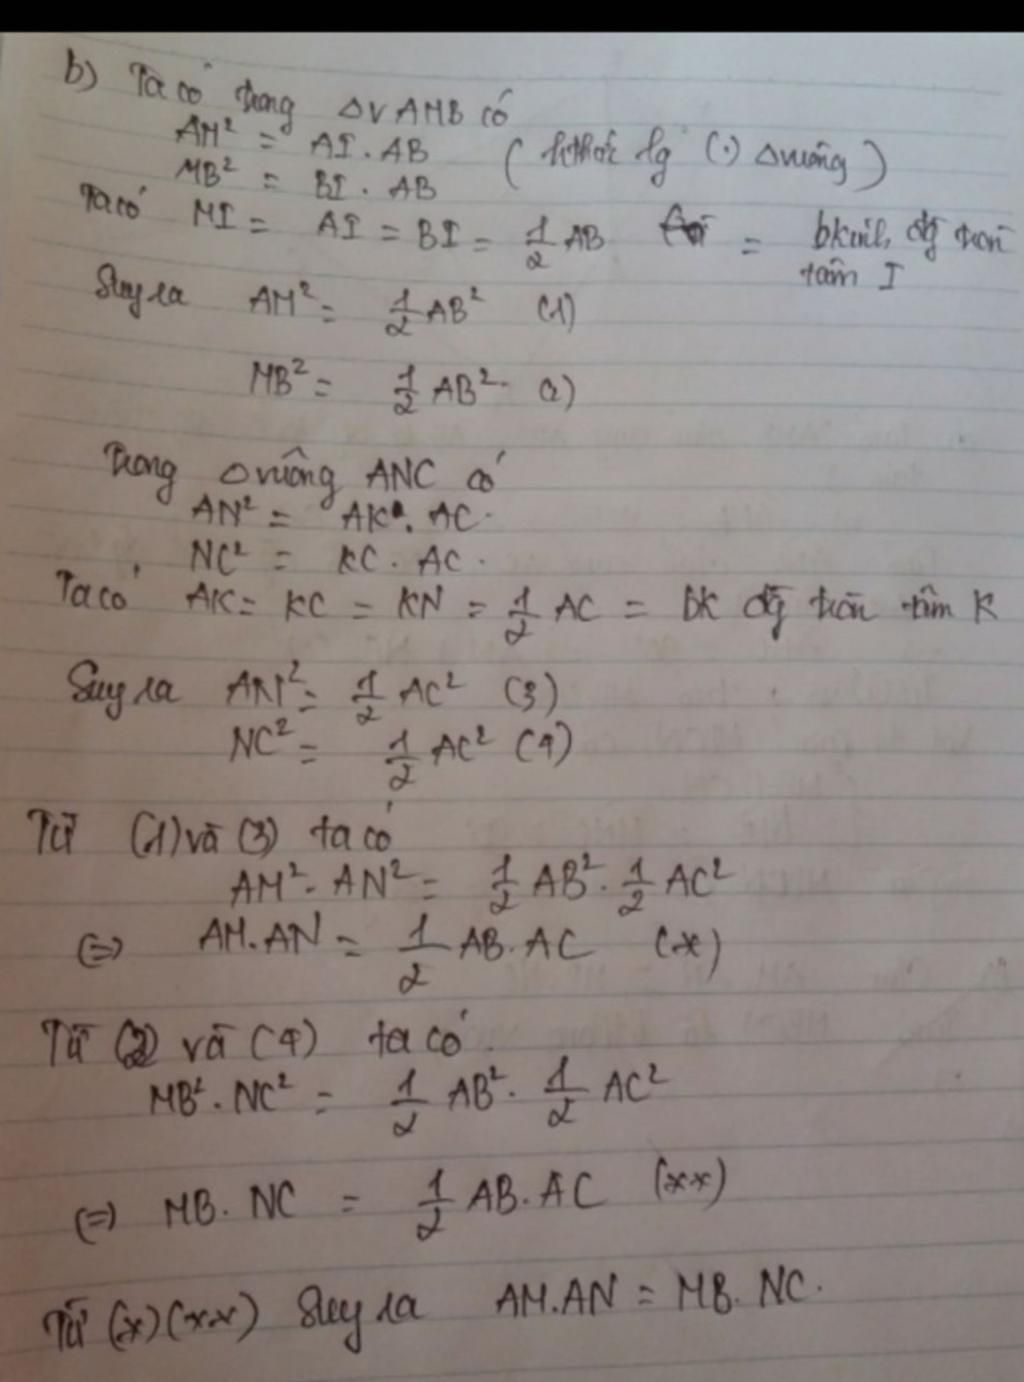 b) Ta có trong ΔV AMB có
AM² = AI . AB ( hthức lg (.) Δvuông )
MB² = BI . AB
Ta có MI = AI = BI = 1/2 AB = bkính đg tròn
tâm I
Suy ra AM² = 1/2 AB² (1)
MB² = 1/2 AB². (2)
Trong Δvuông ANC có
AN² = AK . AC .
NC² = KC . AC .
Ta có AK = KC = KN = 1/2 AC = bk đg tròn tâm K
Suy ra AN² = 1/2 AC² (3)
NC² = 1/2 AC² (4)
Từ (1) và (3) ta có
AM² . AN² = 1/2 AB² . 1/2 AC²
(=) AM.AN = 1/2 AB.AC (x)
Từ (2) và (4) ta có
MB² . NC² = 1/2 AB² . 1/2 AC²
(=) MB. NC = 1/2 AB.AC (xx)
Từ (x)(xx) Suy ra AM.AN = MB. NC.